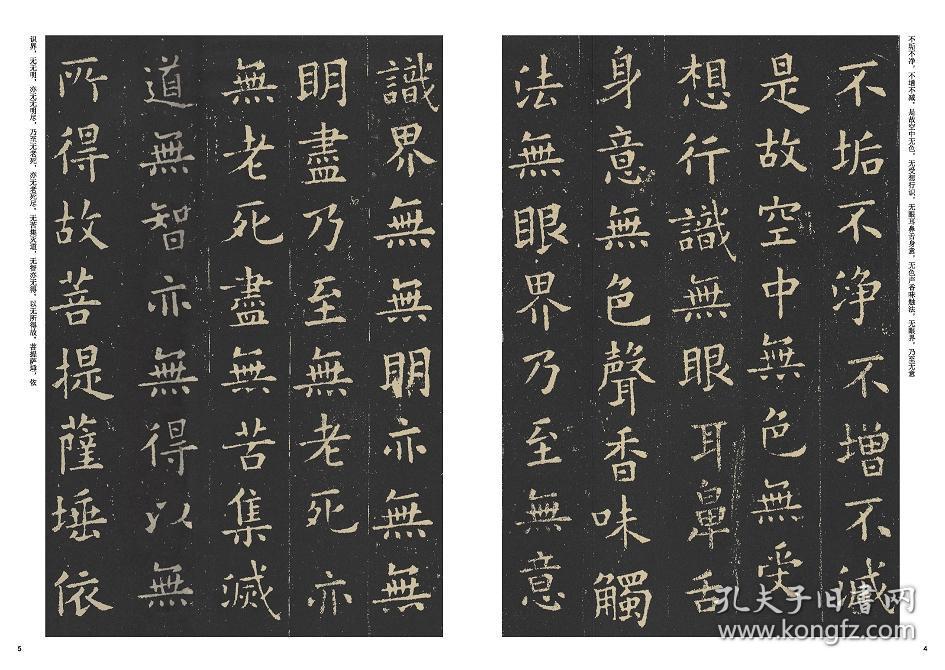 不垢不净，不增不减。是故空中无色，无受想行识，无眼耳鼻舌身意，无色声香味触法，无眼界，乃至无意
不垢不淨不增不減
是故空中無色無受
想行識無眼耳鼻舌
身意無色聲香味觸
法無眼界乃至無意
4
識界無無明亦無無
明盡乃至無老死亦
無老死盡無苦集滅
道無智亦無得以無
所得故菩提薩埵依
识界，无无明，亦无无明尽，乃至无老死，亦无老死尽，无苦集灭道，无智亦无得。以无所得故，菩提萨埵，依
5
孔夫子旧書网
www.kongfz.com